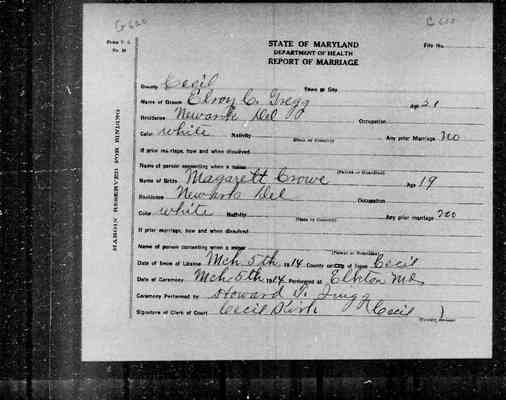 G 620
C 600
STATE OF MARYLAND
DEPARTMENT OF HEALTH
REPORT OF MARRIAGE
File No.
County Cecil Town or City
Name of Groom Elroy C. Gregg Age 21
Residence Newark Del Occupation
Color White Nativity (State or Country) Any prior Marriage no
If prior marriage, how and when dissolved
Name of person consenting when a minor (Parent or Guardian)
Name of Bride Magarett Crowe Age 19
Residence Newark Del Occupation
Color White Nativity (State or Country) Any prior marriage no
If prior marriage, how and when dissolved
Name of person consenting when a minor (Parent or Guardian)
Date of Issue of License Mch 5th 1914 County or City of Issue Cecil
Date of Ceremony Mch 5th 1914 Performed at Elkton Md
Ceremony Performed by Howard T.
Signature of Clerk of Court Cecil Kirk (Cecil)
MARGIN RESERVED FOR BINDING